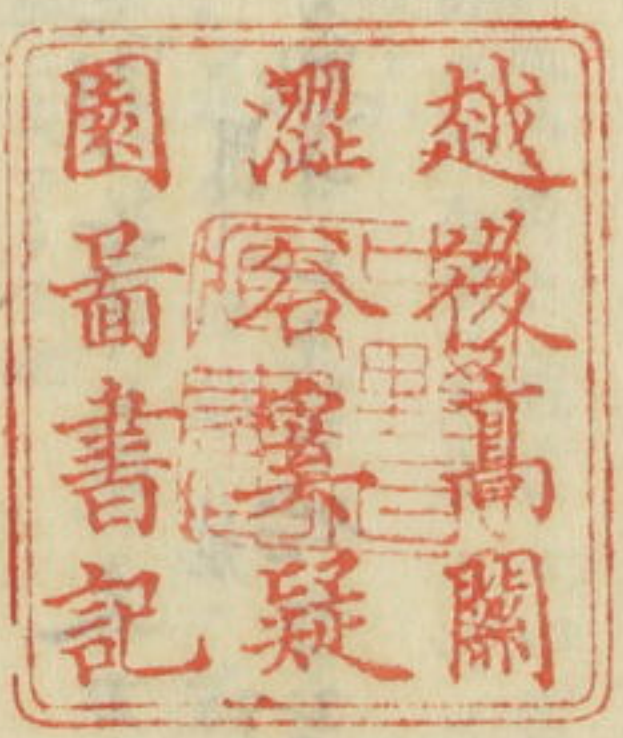 越後髙關
澀谷疑
園啚書記